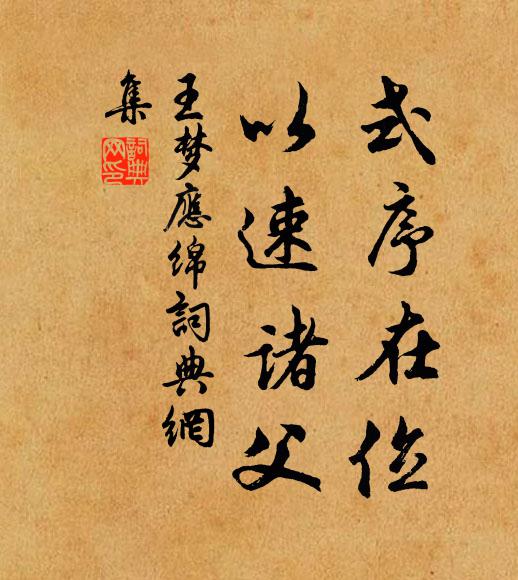 式序在位
以速诸父
王梦應绵詞典網
集
詞典网印